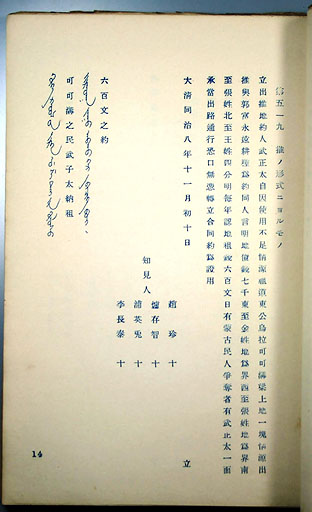 第五一九 推ノ形式ニヨルモノ
立出推地約人武正太自因使用不足情源祖道東公烏拉可可溝梁上地一塊情愿出
推與郭富永遠耕種爲約同人言明地價錢七千東至金姓地爲界西至張姓地爲界南
至張姓北至王姓四分明每年認地根錢六百文日有蒙古民人爭奪者有武正太一面
承當出路通行恐口無憑轉立合同約爲證用
大清同治八年十一月初十日 立
知見人
趙 珍 十
存智 十
浦英兎 十
李長泰 十
六百文之約
可可溝之民武子太納租
14